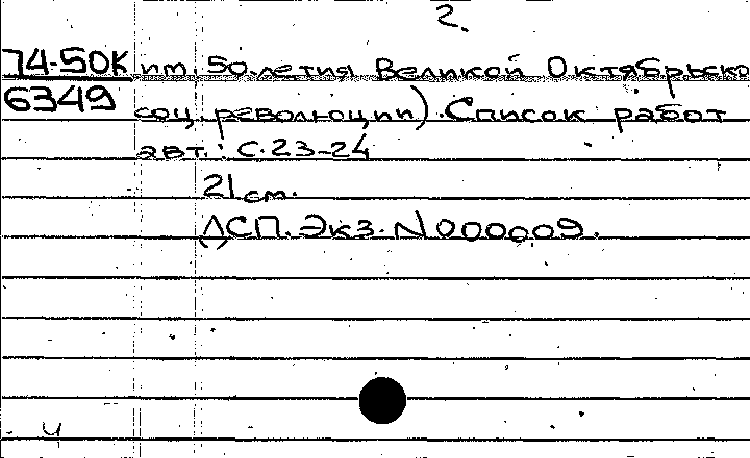 2.
74-50К им. 50-летия Великой Октябрьско
6349 соц. революции). Список работ
авт.: с. 23-24
21 см.
ДСП. Экз. N 000009.
4